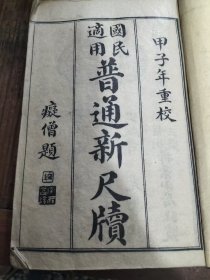 甲子年重校
國民
適用
普通新尺牘
癡僧題